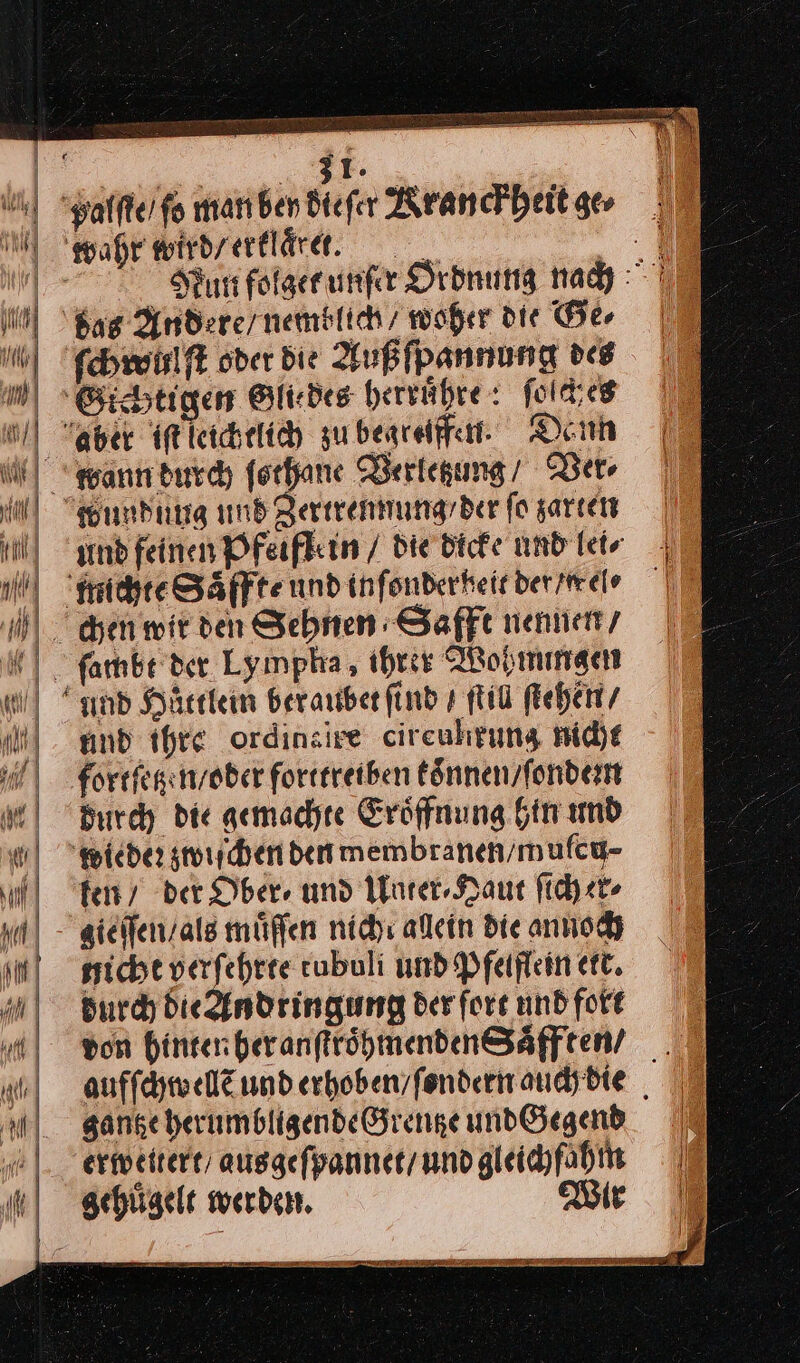 31.
palſte/ ſo man bey dieſer Kranckheit ge-
wahr wird/ erklåret.
Nun folget unſer Ordnung nach
das Andere/ nemblich/ woher die Ge-
ſchwulſt oder die Außſpannung des
Gichtigen Gliedes herrůhre: ſolches
aber iſt leichtlich zu begreiffen. Denn
wann durch ſothane Verletzung/ Ver-
wundung und Zertrennung/ der ſo zarten
und feinen Pfeifflein / die dicke und lei-
michte Såffte und inſonderheit der/ wel-
chen wir den Sehnen-Safft nennen/
ſambt der Lympha, ihrer Wohnungen
und Hůttlein beraubet ſind / ſtill ſtehen/
und ihre ordinaire circulirung nicht
fortſetzen/ oder forttreiben kőnnen/ ſondern
durch die gemachte Erőffnung hin und
wieder zwiſchen den membranen/ muſcu-
len / der Ober- und Unter-Haut ſich er-
gieſſen/ als můſſen nicht allein die annoch
nicht verſehrte tubuli und Pfeiflein ett.
durch die Andringung der fort und fort
von hinten her anſtrőhmenden Såfften/
aufſchwellẽ und erhoben/ ſondern auch die
gantze herumbligende Grentze und Gegend
erweitert/ ausgeſpannet/ und gleichſahm
gehůgelt werden.
Wir